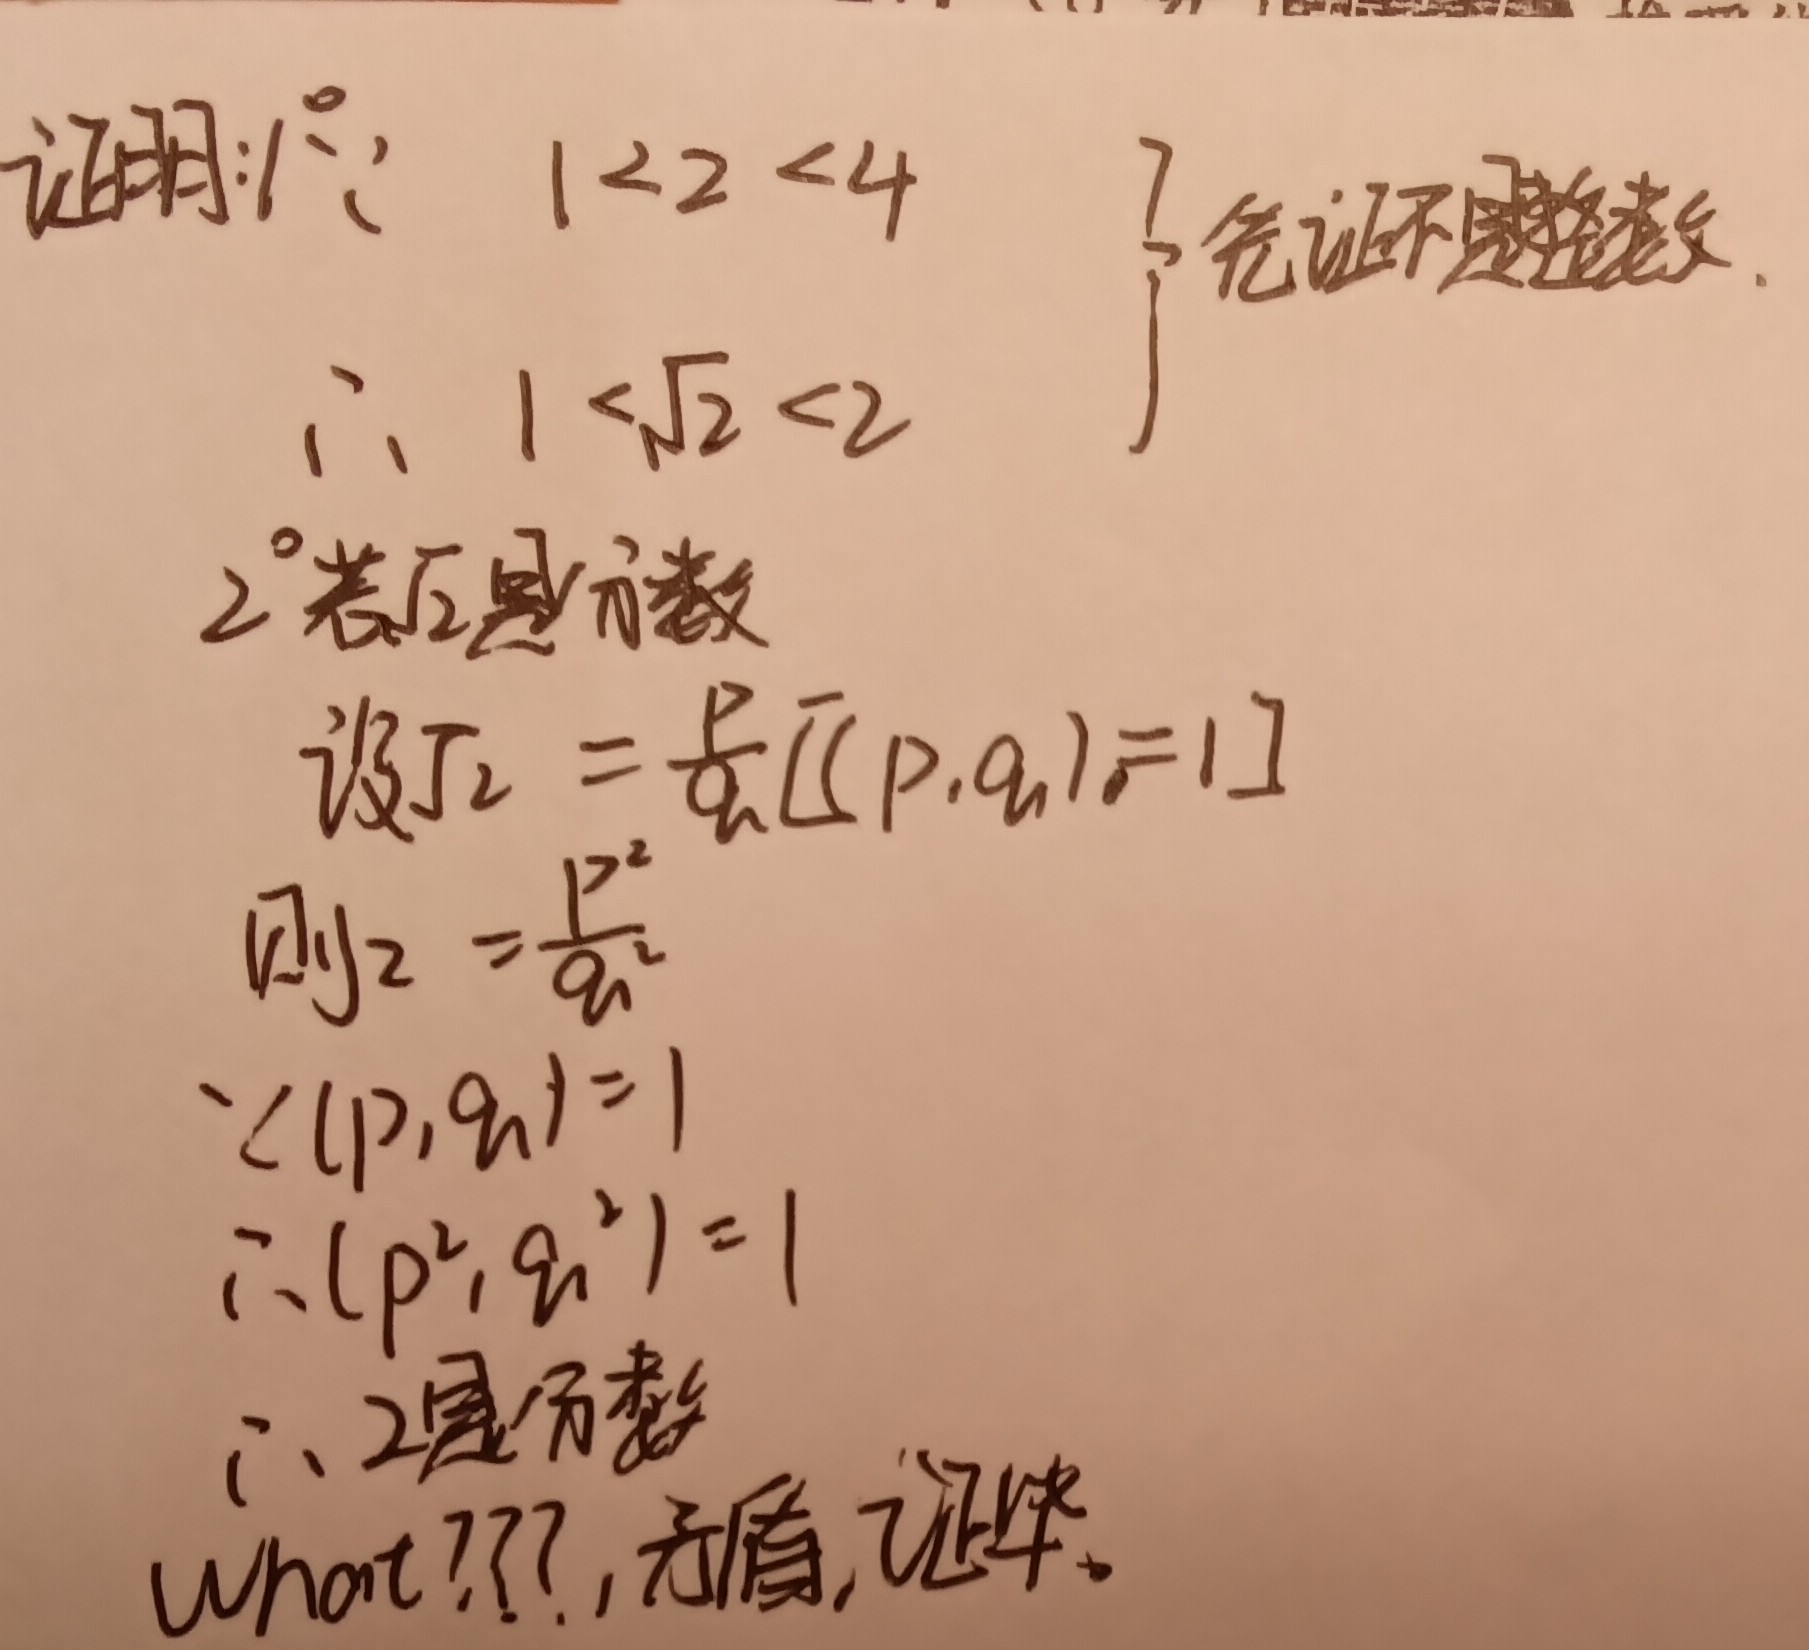 证明:1° ∵ 1<2<4 } 先证不是整数.
∴ 1<√2<2
2° 若√2是分数
设√2 = p/q [(p,q)=1]
则2 = p²/q²
∵(p,q)=1
∴(p²,q²)=1
∴2是分数
What???,矛盾,证毕.